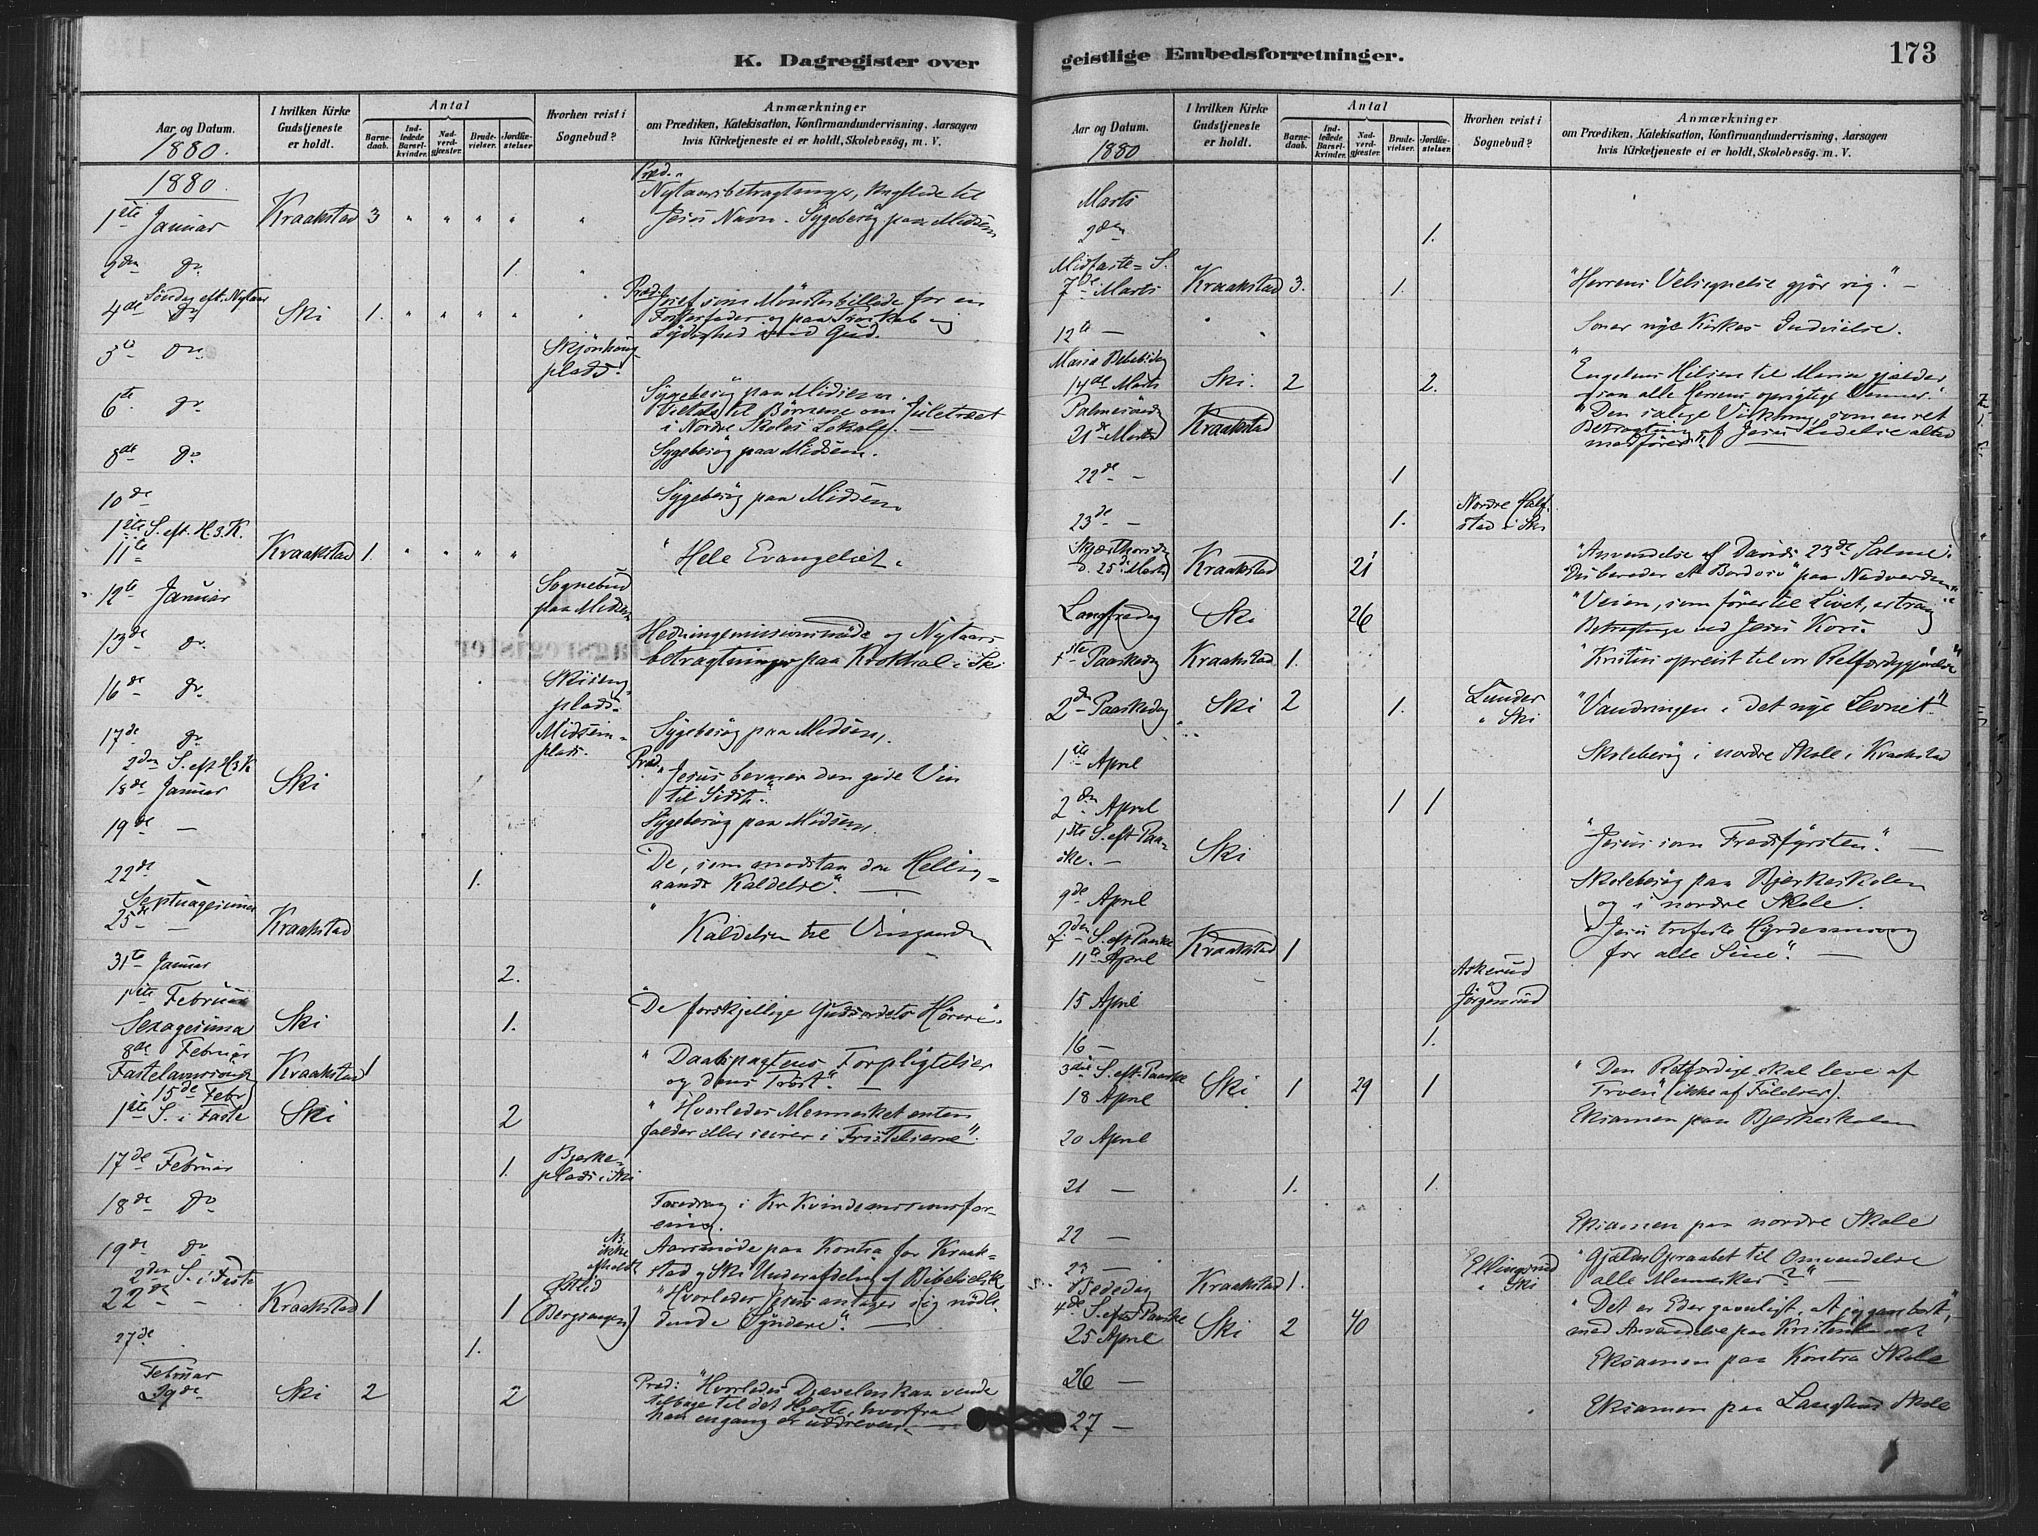 K. Dagregister over
Aar og Datum.
1880.
I hvilken Kirke
Gudstjeneste
er holdt.
Antal
Barne-
daab.
Ind-
ledede
Barsel-
kvinder.
Nad-
verd-
gjæster.
Brude-
vielser.
Jordfæ-
stelser
Hvorhen reist i
Sognebud?
Anmærkninger
om Prædiken, Katekisation, Konfirmandundervisning, Aarsagen
hvis Kirketjeneste ei er holdt, Skolebesøg, m. V.
1880.
Præd.
Nytaarsbetragtninger, knyttede til
1ste Januar Kraakstad 3 " " " " " Jesu Navn. Sygebesøg paa Midsem
2den do 1. "
Søndag eft. Nytaar Præd.
4de do Ski 1. " " " " " Josef som Mønsterbillede for en
Fosterfader og paa Troskab og
Lydighed imod Gud.
5te do Skjønhaug
plads.
Sygebesøg paa Midsem.
6te do til Børnene om Juletræet
i Nordre Skoles Lokale. —
8de do Sygebesøg paa Midsem.
10de Sygebesøg paa Midsem
1ste S. eft. H. 3. K.
11te Kraakstad 1. " " " " " Hele Evangeliet.
12te Januar Sognebud
paa Midsem
13de do Hedningemissionsmøde og Nytaars
betragtninger paa i Ski
16de do plads.
17de do Midsem-
plads. Sygebesøg paa Midsem.
2den S. eft H3K Præd.
18de Januar Ski "Jesus bevarer den gode Vin
til Sidst."
19de — Sygebesøg paa Midsem.
22de 1. De, som modstaa den Hellig-
aands Kaldelse". —
Septuagesima
25de — Kraakstad " Kaldelsen til Viingaarden
31te Januar 2.
1ste Februar
Sexagesima Ski 1. "De forskjellige Gudsordets Hørere".
8de Februar
Fastelavnssøndag Kraakstad 1 " Daabspagtens Forpligtelser
og dens Trøst". —
15de Febr
1ste S. i Faste Ski 2 " Hvorledes Mennesket enten
falder eller seirer i Fristelserne".
17de Februar 1. Bjerke-
plads i Ski
18de do Foredrag i Kr Kvindemissionsfor-
ening.
19de do NB
ikke
afholdt Aarsmøde paa Kontra for Kraak-
stad og Ski Underafdeling af Bibelselsk
2den S. i Faste
22de — Kraakstad 1 1 (Bergsengen) "Hvorledes Jesus antager sig nødli-
dende Syndere". —
27de 1.
Februar
29de Ski 2 2 Præd: "Hvorledes Djævelen kan vende
tilbage til det Hjerte, hvorfra
han engang er uddreven. —
geistlige Embedsforretninger.
173
Aar og Datum.
1880
I hvilken Kirke
Gudstjeneste
er holdt.
Antal
Barne-
daab.
Ind-
ledede
Barsel-
kvinder.
Nad-
verd-
gjæster.
Brude-
vielser.
Jordfæ-
stelser.
Hvorhen reist i
Sognebud?
Anmærkninger
om Prædiken, Katekisation, Konfirmandundervisning, Aarsagen
hvis Kirketjeneste ei er holdt, Skolebesøg. m. V.
Marts
2den 1.
Midfaste= S.
7de Marts Kraakstad 3. 1. "Herrens Velsignelse gjør rig." —
12te — " " nye Kirkes Indvielse.
Maria Bebudelsesdag
14de Marts Ski. 2 2. "Engelens Hilsen til Maria gjælder
alle Herrens oprigtige Venner."
Palmesøndag
21de Marts Kraakstad "Den salige Virkning, som en ret
Betragtning af Jesu Lidelse altid
medfører".
22de — 1
23de — 1. Nordre
stad i Ski
Skjærthorsdag
d. 25de Marts Kraakstad 21 "Anvendelse af Davids 23de Salme:
"Du bereder et Bord osv" paa Nadverden".
Langfredag Ski 26 "Veien, som fører til Livet, er trang"
Betragtninger ved Jesu Kors.
1ste Paaskedag Kraakstad 1. "Kristus opreist til vor Retfærdiggjørelse"
2den Paaskedag Ski 2 1. Lunder
i Ski "Vandringen i det nye Levnet"
1ste April Skolebesøg i nordre Skole i Kraakstad
2den April 1 1
1ste S. eft Paa-
ske. — Ski "Jesus som Fredsfyrsten". —
9de April Skolebesøg paa Bjerkeskolen
og i nordre Skole.
2den S. eft Paaske
11te April Kraakstad 1 "Jesu trofaste Hyrdeomsorg
for alle Sine". —
15 April Askerud
og
Jørgensrud
16 — 1.
3die S. eft. Paaske
18 April Ski 1 29 1 " Den Retfærdige skal leve af
Troen" (ikke af Følelser).
20 April Eksamen paa Bjerkeskolen
21 — 1. 1.
22 — Eksamen paa nordre Skole
23 —
Bededag Kraakstad 1. Ellingsrud
i Ski "Gjælder Opraabet til Omvendelse
alle Mennesker?" —
4de S. eft Paaske
25 April Ski 2 40 "Det er Eder gavnligt, at jeg gaar bort",
med Anvendelse paa Kristenlivet
26 — Eksamen paa Kontra Skole
27 — Eksamen paa Langhus Skole